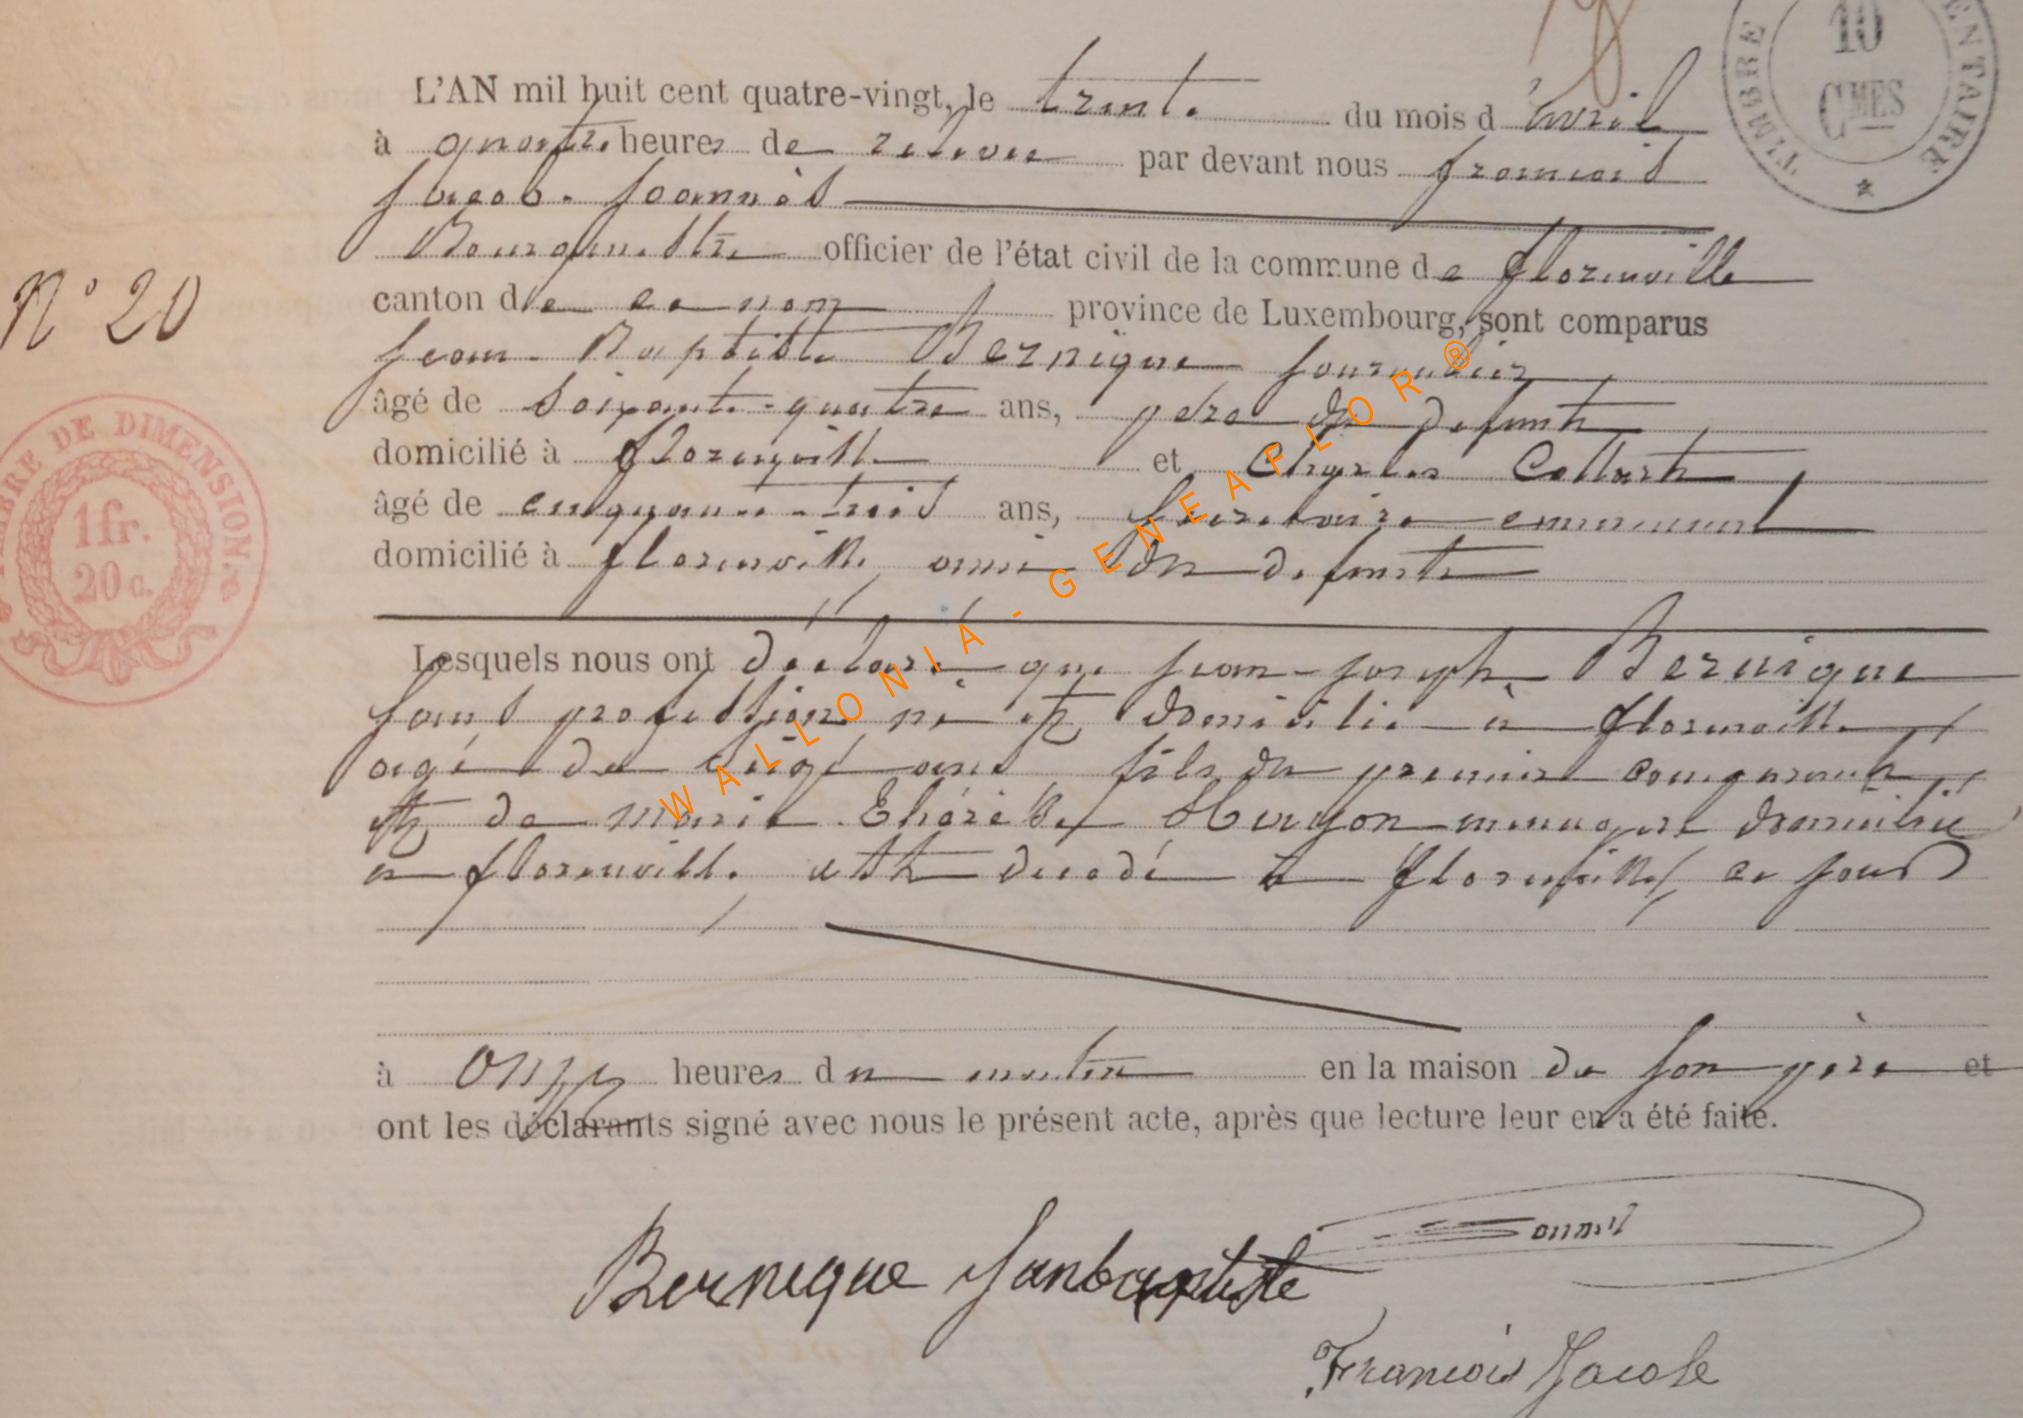 TIMBRE
10
CMES
ENTAIRE
L'AN mil huit cent quatre-vingt, le trente du mois d'avril
à quatre heures de relevée par devant nous françois
Jacob-Joannès
Bourgmestre officier de l'état civil de la commune de florenville
canton de ce nom province de Luxembourg, sont comparus
N° 20
Jean-Baptiste Bernique journalier
âgé de soixante-quatre ans, père du defunt
domicilié à florenville et Charles Collart
âgé de cinquante-trois ans, secretaire communal
domicilié à florenville, ami du defunt
TIMBRE DE DIMENSION.
1 fr.
20 c.
Lesquels nous ont déclaré que Jean-Joseph Bernique
sans profession né et domicilié à florenville,
agé de ans fils du premier comparant
et de Marie Thérèse menagère domiciliée
à florenville, est decedé à florenville, ce jour
à onze heures du matin en la maison de son père et
ont les déclarants signé avec nous le présent acte, après que lecture leur en a été faite.
Bernique Janbaptiste
François Jacob
WALLONIA - GENEAFLOR ®